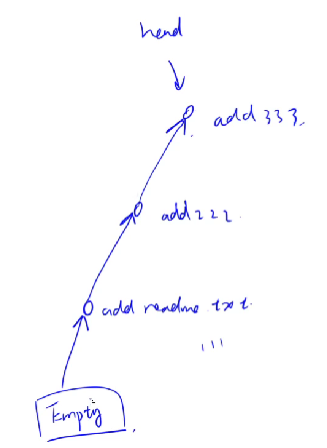 head
add 333.
add 222.
add readme txt.
111
Empty.